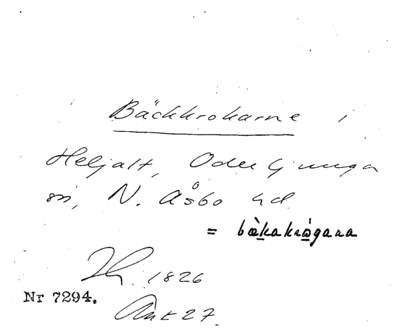 Bäckkrokarne i
Heljalt, Oderljunga
sn, N. Åsbo hd
= bäkakrågana
1826
Nr 7294.
Ant 27.